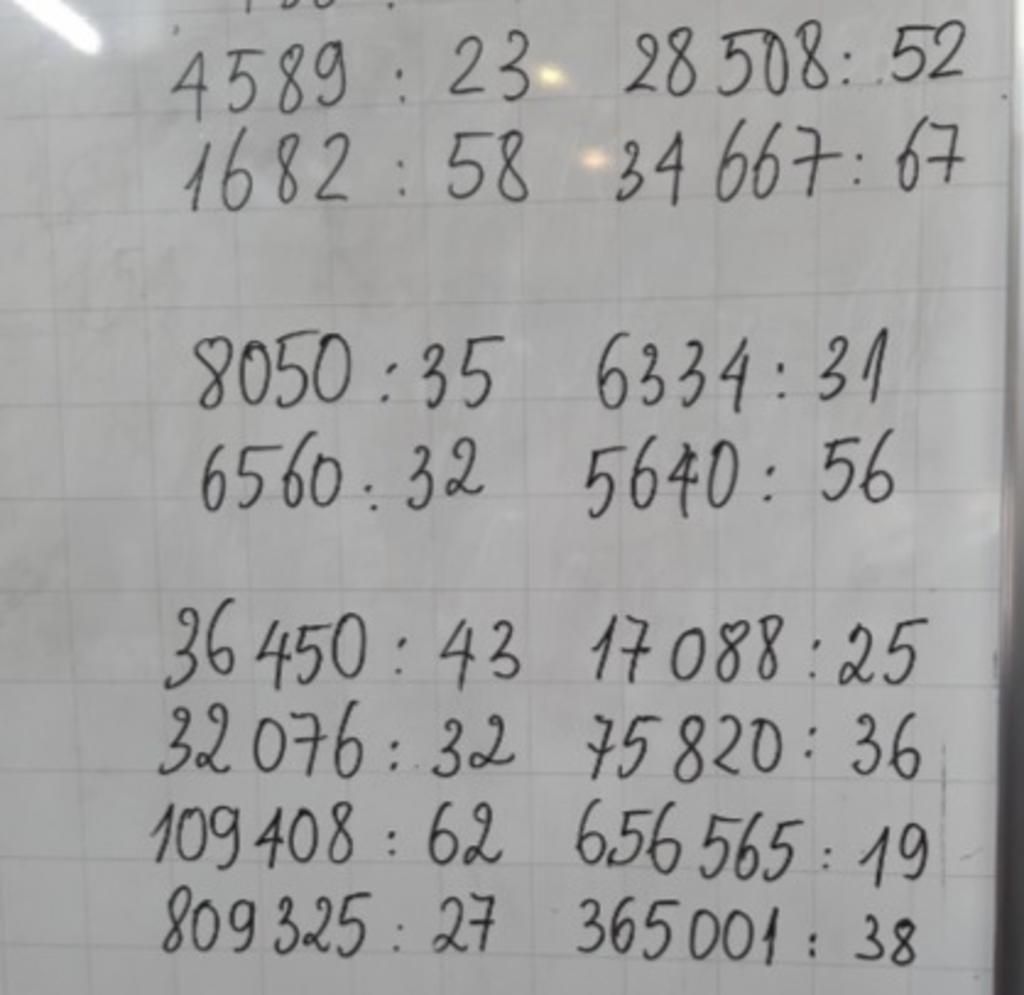 4589 : 23 28 508 : 52
1682 : 58 34 667 : 67
8050 : 35 6334 : 31
6560 : 32 5640 : 56
36 450 : 43 17 088 : 25
32 076 : 32 75 820 : 36
109 408 : 62 656 565 : 19
809 325 : 27 365 001 : 38